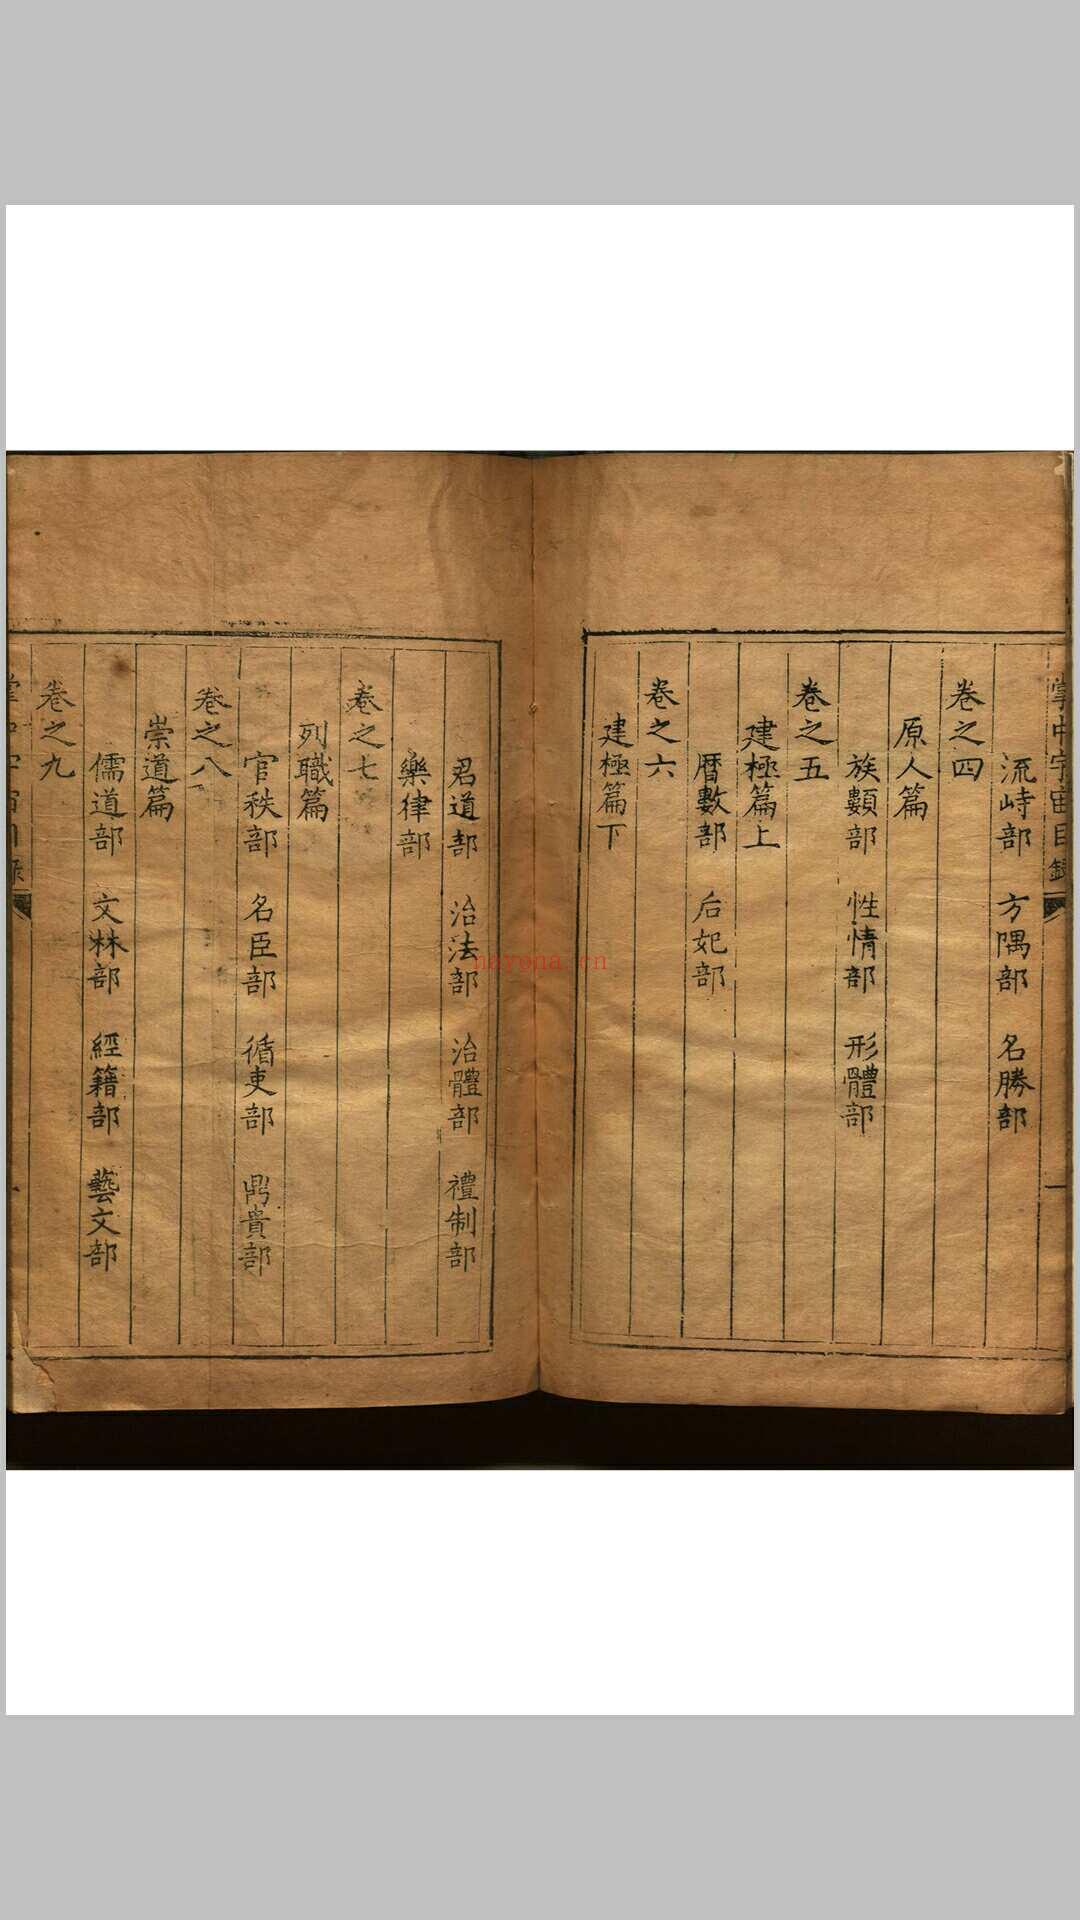 掌中宇宙目錄
一
流峙部 方隅部 名勝部
卷之四
原人篇
族類部 性情部 形體部
卷之五
建極篇上
曆數部 后妃部
卷之六
建極篇下
君道部 治法部 治體部 禮制部
樂律部
卷之七
列職篇
官秩部 名臣部 循吏部 鼎貴部
卷之八
崇道篇
儒道部 文林部 經籍部 藝文部
卷之九
nayona.cn